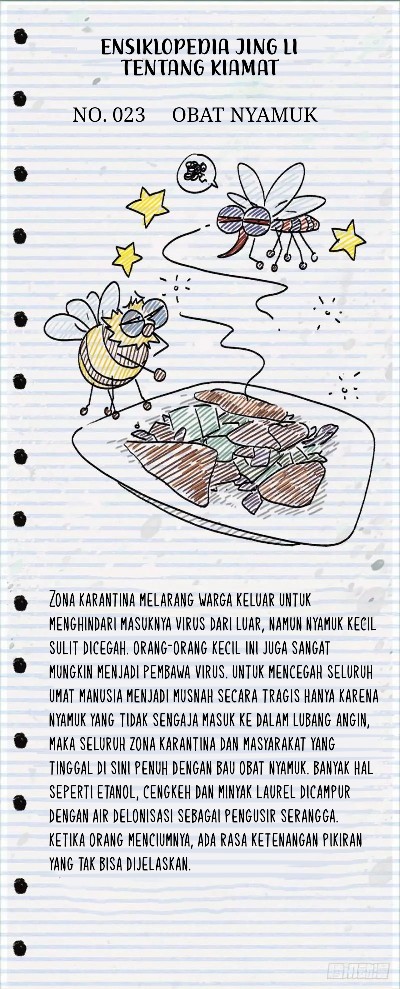 ENSIKLOPEDIA JING LI
TENTANG KIAMAT
NO. 023 OBAT NYAMUK
ZONA KARANTINA MELARANG WARGA KELUAR UNTUK
MENGHINDARI MASUKNYA VIRUS DARI LUAR, NAMUN NYAMUK KECIL
SULIT DICEGAH. ORANG-ORANG KECIL INI JUGA SANGAT
MUNGKIN MENJADI PEMBAWA VIRUS. UNTUK MENCEGAH SELURUH
UMAT MANUSIA MENJADI MUSNAH SECARA TRAGIS HANYA KARENA
NYAMUK YANG TIDAK SENGAJA MASUK KE DALAM LUBANG ANGIN,
MAKA SELURUH ZONA KARANTINA DAN MASYARAKAT YANG
TINGGAL DI SINI PENUH DENGAN BAU OBAT NYAMUK. BANYAK HAL
SEPERTI ETANOL, CENGKEH DAN MINYAK LAUREL DICAMPUR
DENGAN AIR DELONISASI SEBAGAI PENGUSIR SERANGGA.
KETIKA ORANG MENCIUMNYA, ADA RASA KETENANGAN PIKIRAN
YANG TAK BISA DIJELASKAN.